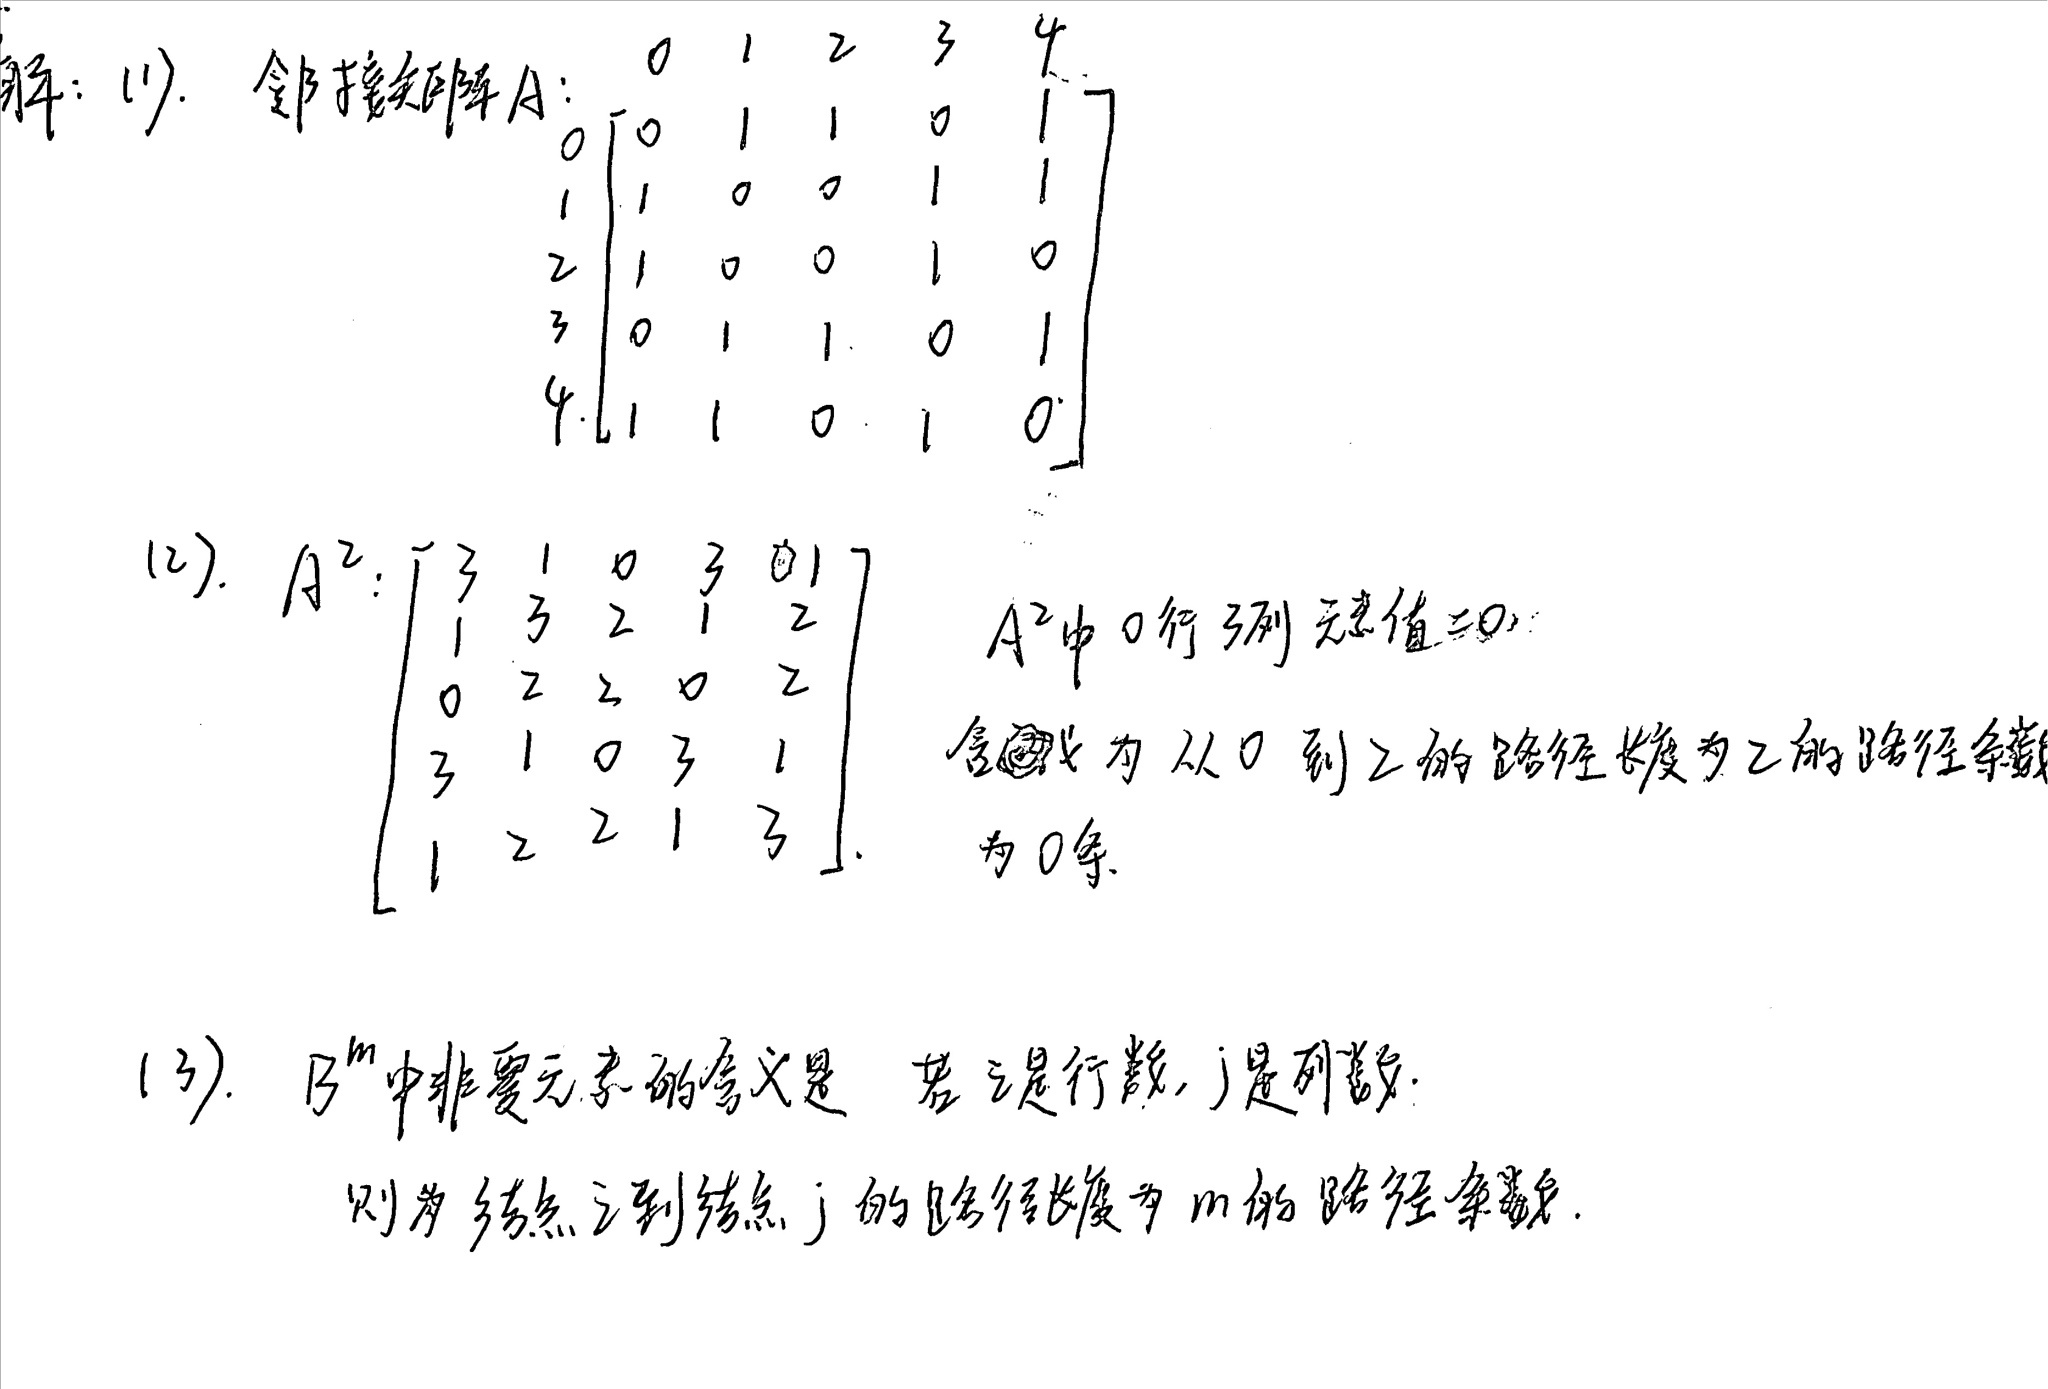 解：(1). 邻接矩阵A：
0 1 2 3 4
0 0 1 1 0 1
1 1 0 0 1 1
2 1 0 0 1 0
3 0 1 1 0 1
4. 1 1 0 1 0
(2). A²：
3 1 0 3 1
1 3 2 1 2
0 2 2 0 2
3 1 0 3 1
1 2 2 1 3
A²中0行3列元素值=0,
含义为从0到2的路径长度为2的路径条数
为0条.
(3). Bᵐ中非零元素的含义是 若i是行数，j是列数.
则为结点i到结点j的路径长度为m的路径条数.